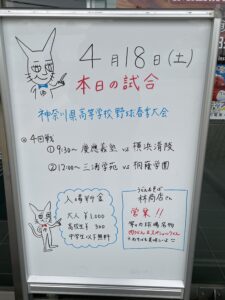 4月18日(土)
本日の試合
神奈川県高等学校野球春季大会
◎ 4回戦
①9:30〜 慶應義塾 vs 横浜清陵
②12:00〜 三浦学苑 vs 桐蔭学園
入場料金
大人 ¥1,000
高校生 ¥300
中学生以下無料
うどん&そば
林商店さん
営業!!